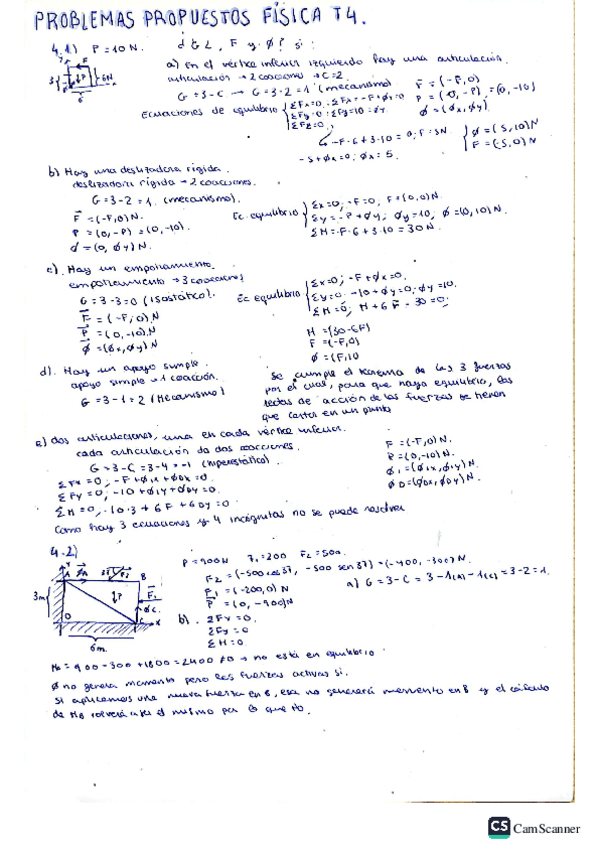 PROBLEMAS PROPUESTOS FÍSICA T4.
4.1) P=10N. ¿ G, F y Ø? si:
a) en el vértice inferior izquierdo hay una articulación.
articulación → 2 coacciones → C=2.
G=3-C → G=3-2=1 (mecanismo)
F=(-F,0)
P=(0,-P)=(0,-10)
Ø=(Øx,Øy)
Ecuaciones de equilibrio
ΣFx=0
-F·6+3·10=0; F=5N
-5+Øx=0; Øx=5.
Ø=(5,10)N
F=(-5,0)N
b) Hay una deslizadora rígida.
deslizadora rígida → 2 coacciones.
G=3-2=1. (mecanismo).
F=(-F,0)N
P=(0,-P)=(0,-10).
Ø=(0,Øy)N.
Ec. equilibrio
Σx=0; -F=0, F=(0,0)N
Σy=-P+Øy; Øy=10, Ø=(0,10)N.
ΣM=-F·6+3·10=30N.
c). Hay un empotramiento.
empotramiento → 3 coacciones
G=3-3=0 (isostático).
F=(-F,0)N
P=(0,-10)N
Ø=(Øx,Øy)N
Ec equilibrio
Σx=0; -F+Øx=0.
Σy=0; -10+Øy=0; Øy=10.
ΣM=0; M+6F-30=0;
M=(30-6F)
F=(-F,0)
Ø=(F,10
d). Hay un apoyo simple.
apoyo simple → 1 coacción.
G=3-1=2 (Mecanismo)
Se cumple el teorema de las 3 fuerzas
por el cual, para que haya equilibrio, las
rectas de acción de las fuerzas se tienen
que cortar en un punto
e) dos articulaciones, una en cada vértice inferior.
cada articulación da dos coacciones.
G=3-C=3-4=-1 (hiperestático).
ΣFx=0; -F+Øix+ØDx=0.
ΣFy=0; -10+Øiy+ØDy=0.
ΣM=0; -10·3+6F+6Dy=0
F=(-F,0)N.
P=(0,-10)N.
Øi=(Øix,Øiy)N
ØD=(ØDx,ØDy)N.
Como hay 3 ecuaciones y 4 incógnitas no se puede resolver
4.2)
A
B
P
F1
3m
O
C
x
6m.
P=900N F1=200 F2=500.
F2=(-500cos37, -500 sen37)=(-400,-300)N.
F1=(-200,0)N
P=(0,-900)N
a) G=3-C=3-1(A)-1(C)=3-2=1.
b).
ΣFx=0.
ΣFy=0
ΣM=0.
-300+1800=2400≠0 → no está en equilibrio.
Ø no genera momento pero las fuerzas activas sí.
Si aplicamos una nueva fuerza en B, esa no generará momento en B y el cálculo
de MB volverá a ser el mismo
CS CamScanner